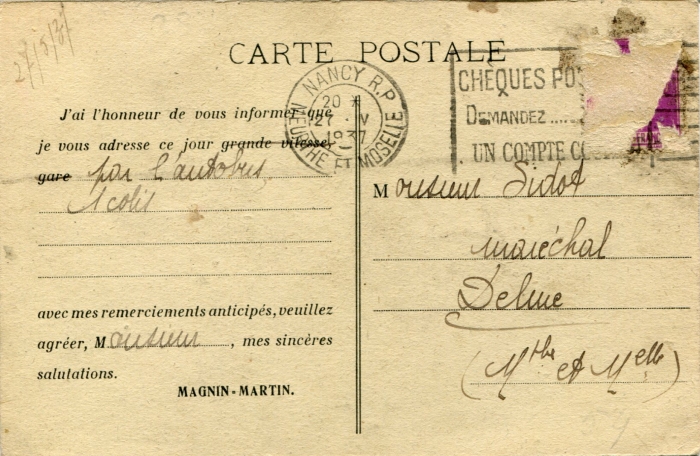 27/5/37
CARTE POSTALE
NANCY R.P
20 *
27 · V
1937
MEURTHE ET MOSELLE
CHÈQUES PO
DEMANDEZ .....
UN COMPTE C
J'ai l'honneur de vous informer que
je vous adresse ce jour grande vitesse,
gare par l'autobus
1 colis
avec mes remerciements anticipés, veuillez
agréer, Monsieur, mes sincères
salutations.
MAGNIN-MARTIN.
Monsieur Sidot
maréchal
Delme
(Mthe et Melle)